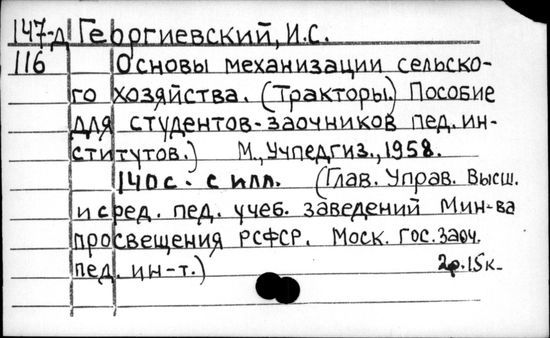 147-д Георгиевский, И.С.
116 Основы механизации сельско-
го хозяйства. (Тракторы.) Пособие
для студентов-заочников пед. ин-
ститутов.) М., Учпедгиз., 1958.
140 с. с илл. (Глав. Управ. Высш.
и сред. пед. учеб. заведений Мин-ва
просвещения РСФСР. Моск. гос. заоч.
пед. ин-т.) 2р. 15к.